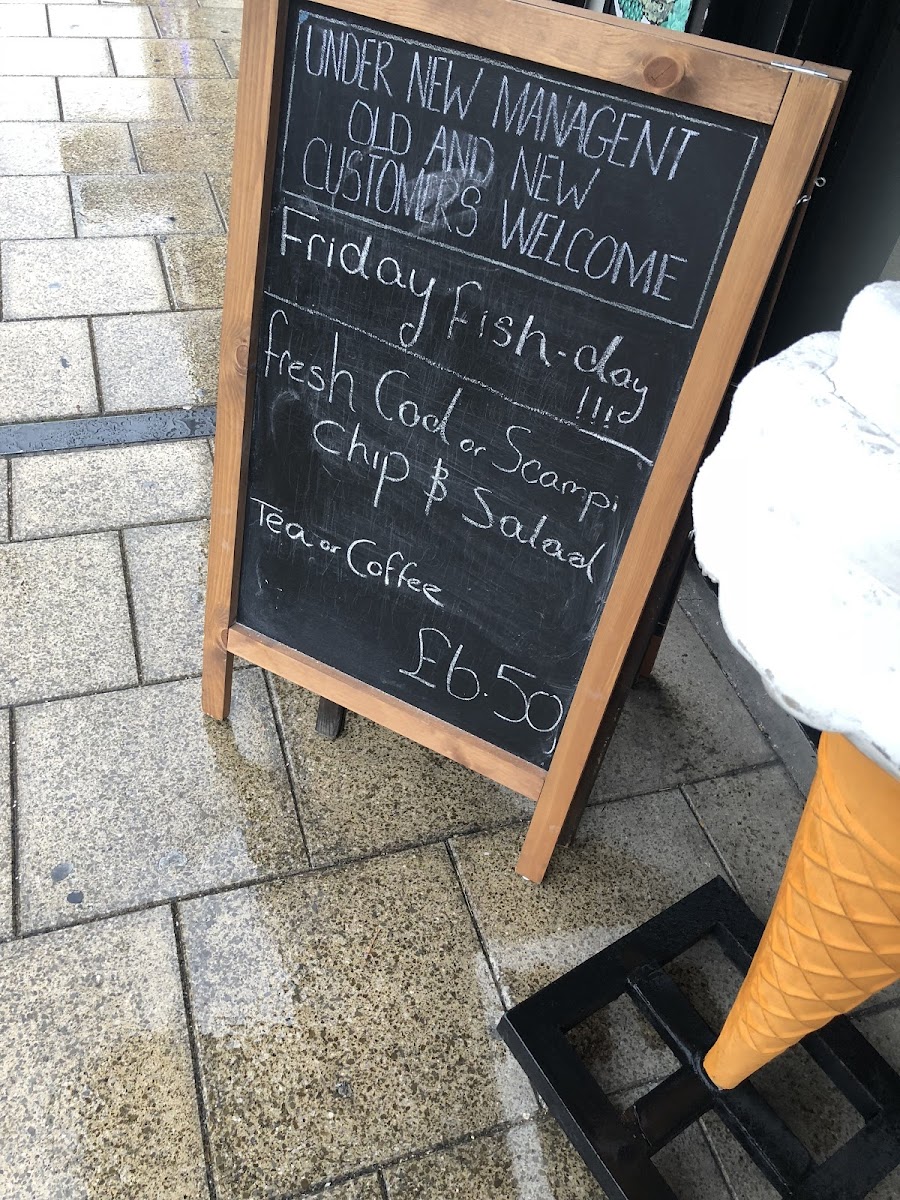 UNDER NEW MANAGENT
OLD AND NEW
CUSTOMER'S WELCOME
Friday fish-day
!!!
fresh Cod or Scampi
Chip & Salad
Tea or Coffee
£6.50